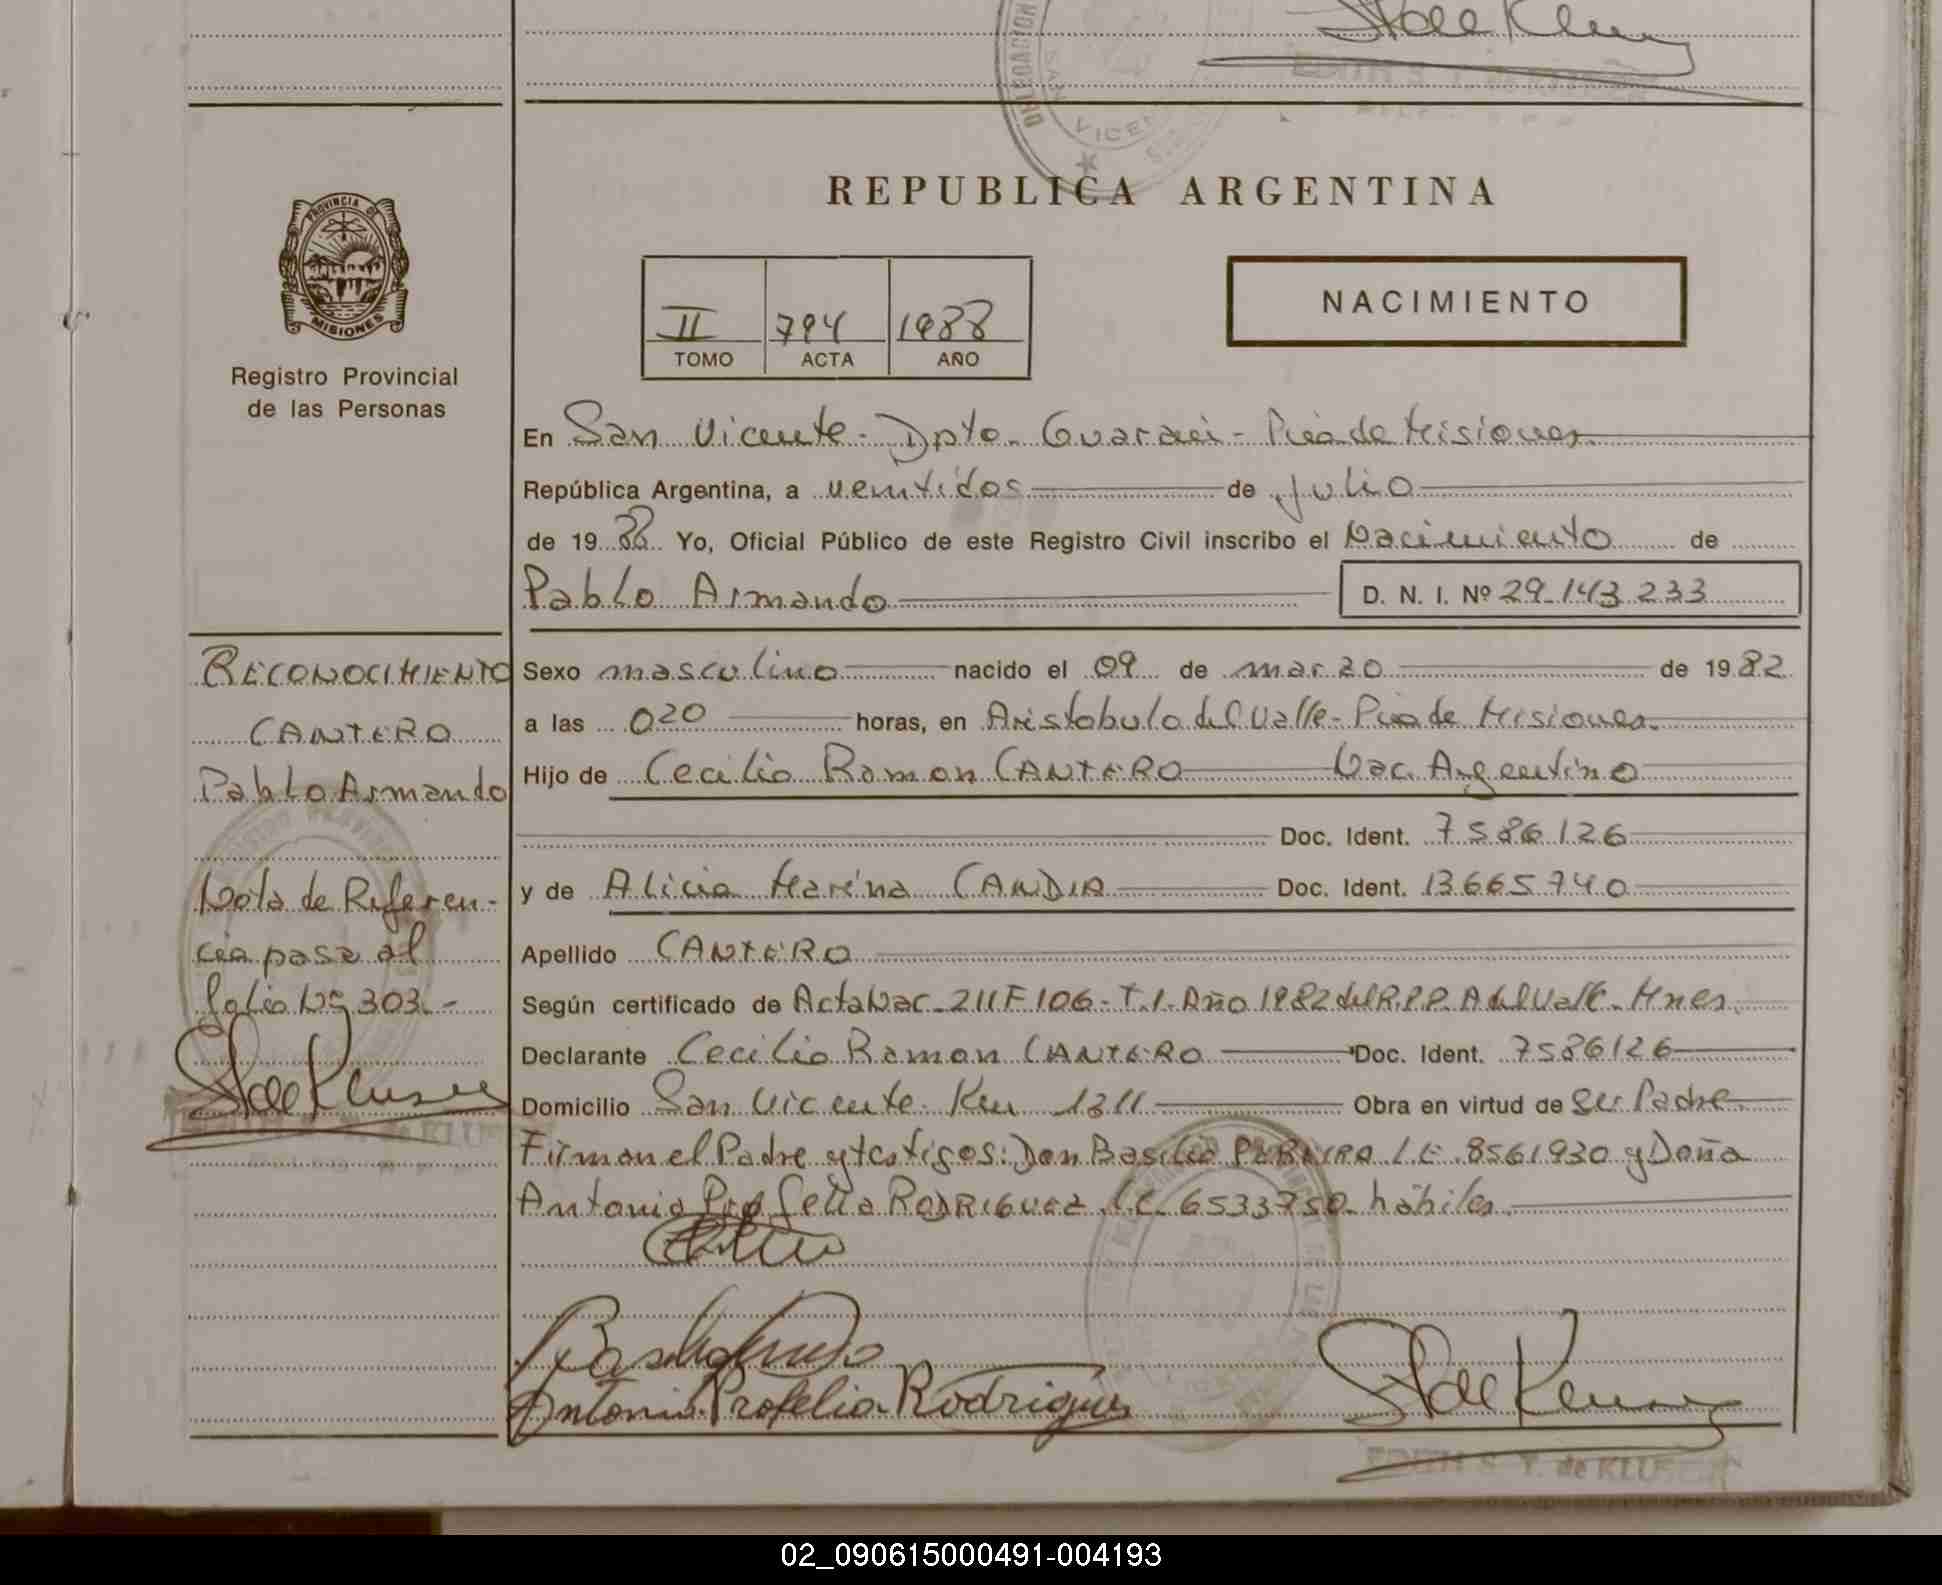 REPUBLICA ARGENTINA
PROVINCIA DE
MISIONES
Registro Provincial
de las Personas
II 794 1988
TOMO ACTA AÑO
NACIMIENTO
En San Vicente - Dpto. Guaraní - Pcia de Misiones
República Argentina, a ventidos de julio
de 19 88 Yo, Oficial Público de este Registro Civil inscribo el Nacimiento de
Pablo Armando D. N. I. Nº 29.143.233
RECONOCIMIENTO
CANTERO
Pablo Armando
Nota de Referen-
cia pasa al
folio Nº 303.-
Sexo masculino nacido el 09 de marzo de 1982
a las 020 horas, en Aristobulo del Valle - Pcia de Misiones.
Hijo de Cecilio Ramon CANTERO Nac. Argentino
Doc. Ident. 7586126
y de Alicia Marina CANDIA Doc. Ident. 13665740
Apellido CANTERO
Según certificado de Acta Nac. 211 F 106 - T. I - Año 1982 del R.P.P. A del Valle - Mnes.
Declarante Cecilio Ramon CANTERO Doc. Ident. 7586126
Domicilio San Vicente Km 1311 Obra en virtud de ser Padre
Firman el Padre y testigos: Don Basilio PEREIRA L.E. 8561930 y Doña
Antonia Profelia RODRIGUEZ L.C. 6533750 hábiles
Antonia Profelia Rodrigues
EDITH S. Y. de KLUSENER
02_090615000491-004193